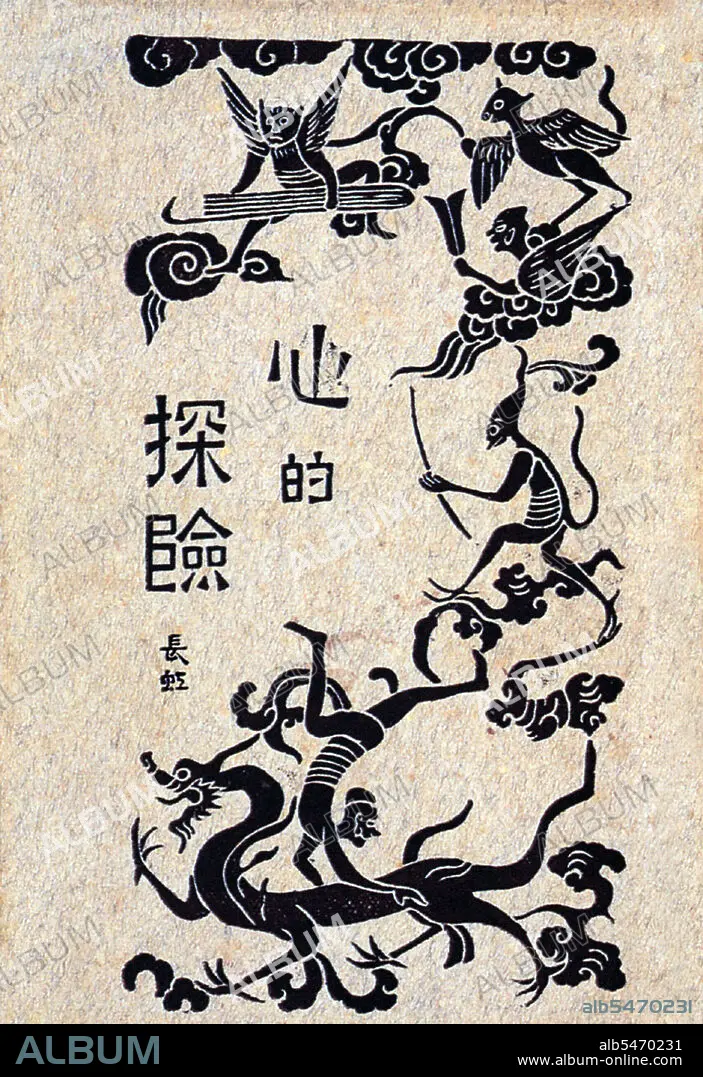 心的
探險
長虹
alb5470231
ALBUM
alb5470231
www.album-online.com